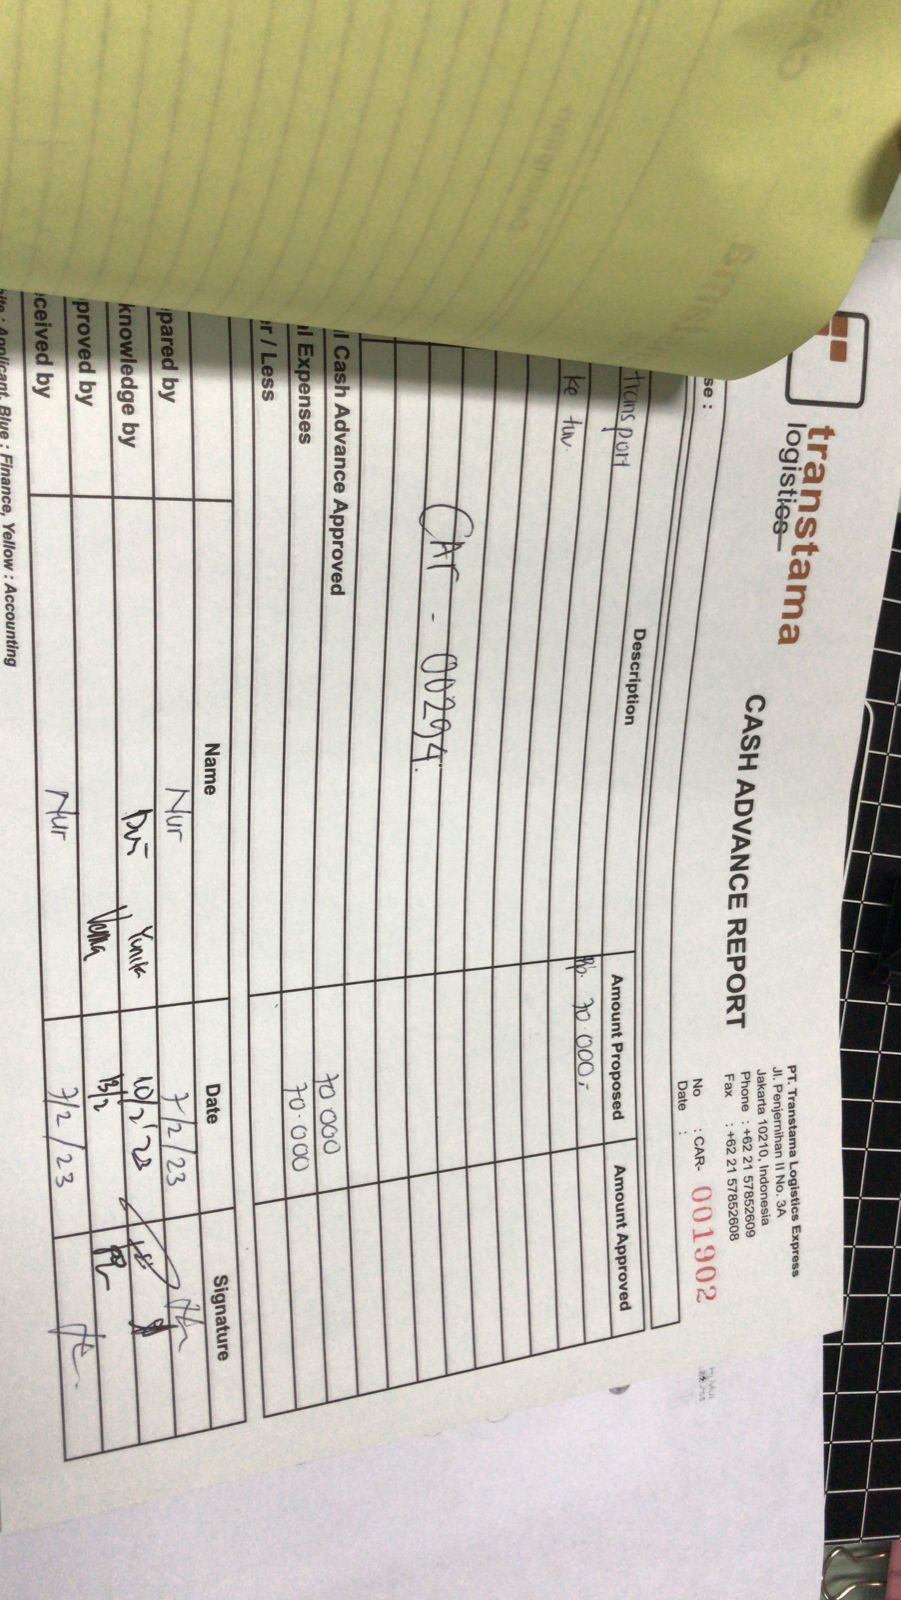 transtama
logistics
CASH ADVANCE REPORT
PT. Transtama Logistics Express
Jl. Penjernihan II No. 3A
Jakarta 10210, Indonesia
Phone : +62 21 57852609
Fax : +62 21 57852608
No : CAR- 001902
Date :
se :
Description Amount Proposed Amount Approved
transport Rp. 70.000,-
ke tuv.
CAR - 00294.
l Cash Advance Approved 70 000
l Expenses 70.000
r / Less
Name Date Signature
pared by Nur 7/2/23
knowledge by Dwi Yunita 10/2'23
proved by Venna 13/2
ceived by Nur 7/2/23
ite : Applicant, Blue : Finance, Yellow : Accounting